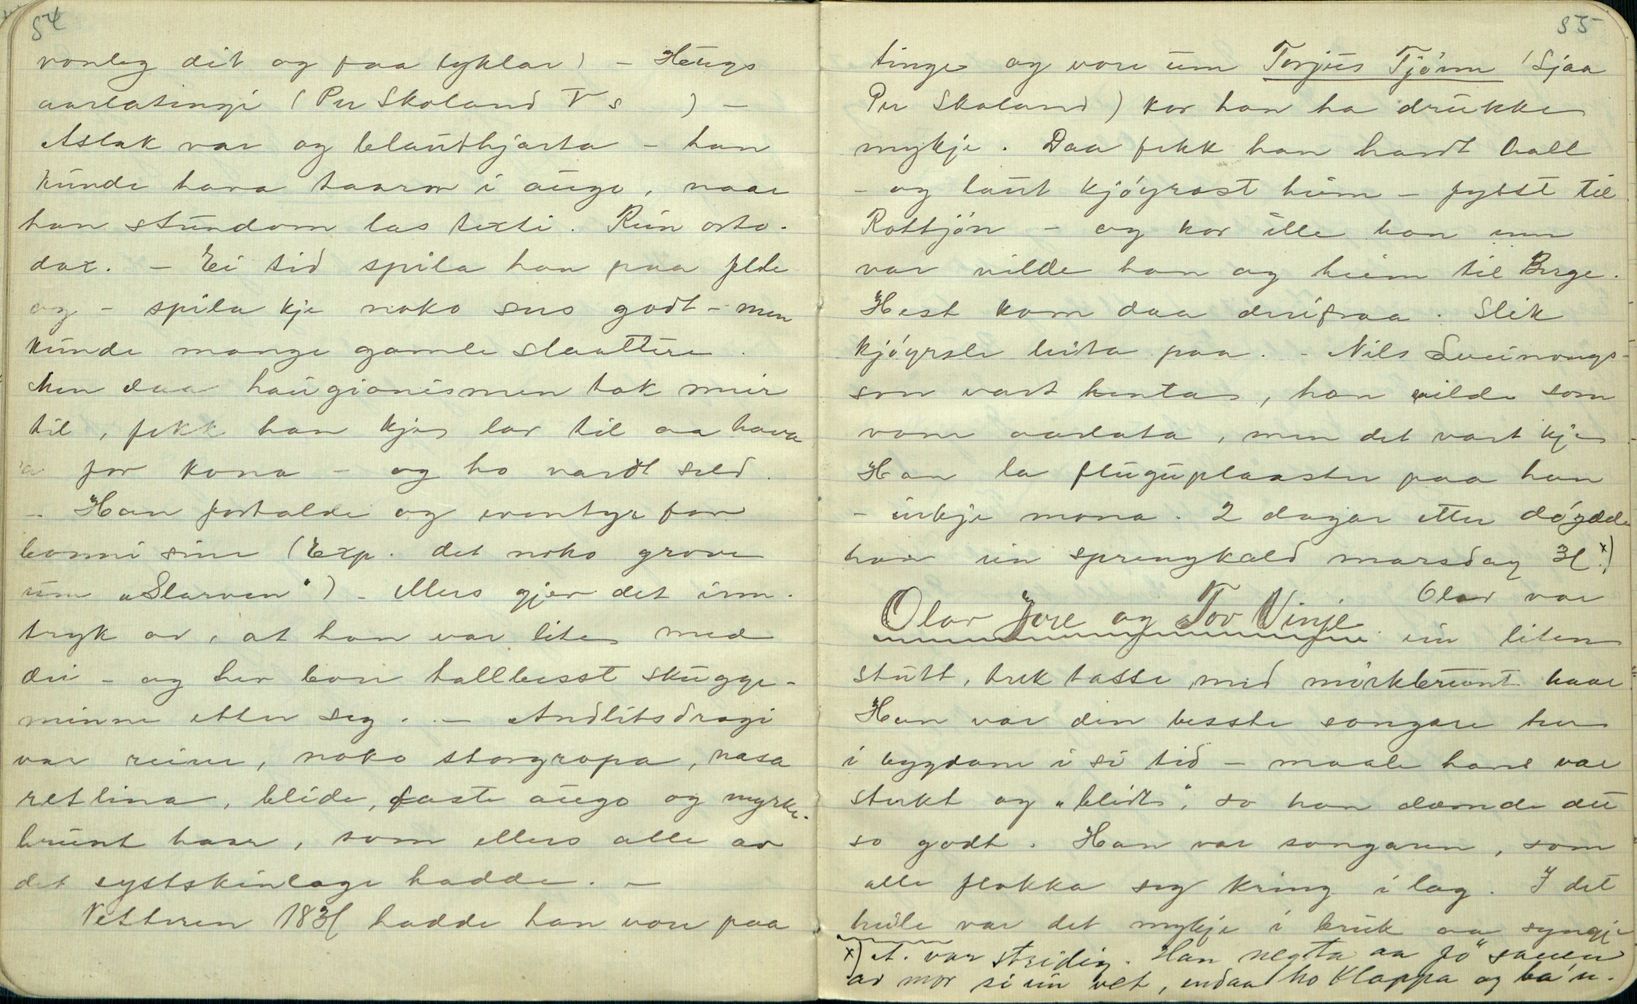 54
vonleg dit og paa lyklar) – Haugs
aarlatingi (Per Skoland V s ) –
Aslak var og blauthjarta – han
kunde hava taaror i augo, naar
han stundom las texti. Rein orto-
dox. – Ei tid spila han paa fele
og – spila kje noko svo godt – men
kunde mange gamle slaattir.
Men daa haugianismen tok meir
til, fekk han kje lov til aa hava
ho for kona – og ho vardt seld.
– Han fortalde og eventyr for
bonni sine (Exp. det noko grove
um "Slarven") – Ellers gjev det inn-
tryk av, at han var liten med
dei – og hev bon tallbesst skugge-
minne etter seg. – Andlitsdragi
var reine, noko storgropa, nasa
retlina, blide, faste augo og myrke-
brunt haar, som ellers alle av
det systskinlage hadde. –
Vetteren 18 hadde han vore paa
55
tinge og vore um Torjus Tjønn (Sjaa
Per Skaland) kor han ha drukke
mykje. Daa fekk han hardt hall
– og laut kjøyrast heim – fysst til
Rottjøn – og kor ille han enn
var vilde han og heim til Berge.
Hest kom daa derifraa. Slik
kjøyrsle leita paa. – Nils Sveinungs-
son vart henta, han vilde som
vone aarlata, men det vart kje
Han la fluguplaaster paa han
– inkje mona. 2 dagar etter døydde
han ein sprengkald marsdag x)
Olav Jore og Tov Vinje Olav var
ein liten
stutt, trek tasse med mørkbrunt haar
Han var den besste songare her
i bygdom i si tid – maale hans var
sterkt og "blidt", so han dømde dei
so godt. Han var songaren, som
alle flokka seg kring i lag. I det
heile var det mykje i bruk aa syngje
x) A. var stridig. Han negta aa fo sauen
av mor si ein vet, endaa ho klappa og ba'n.